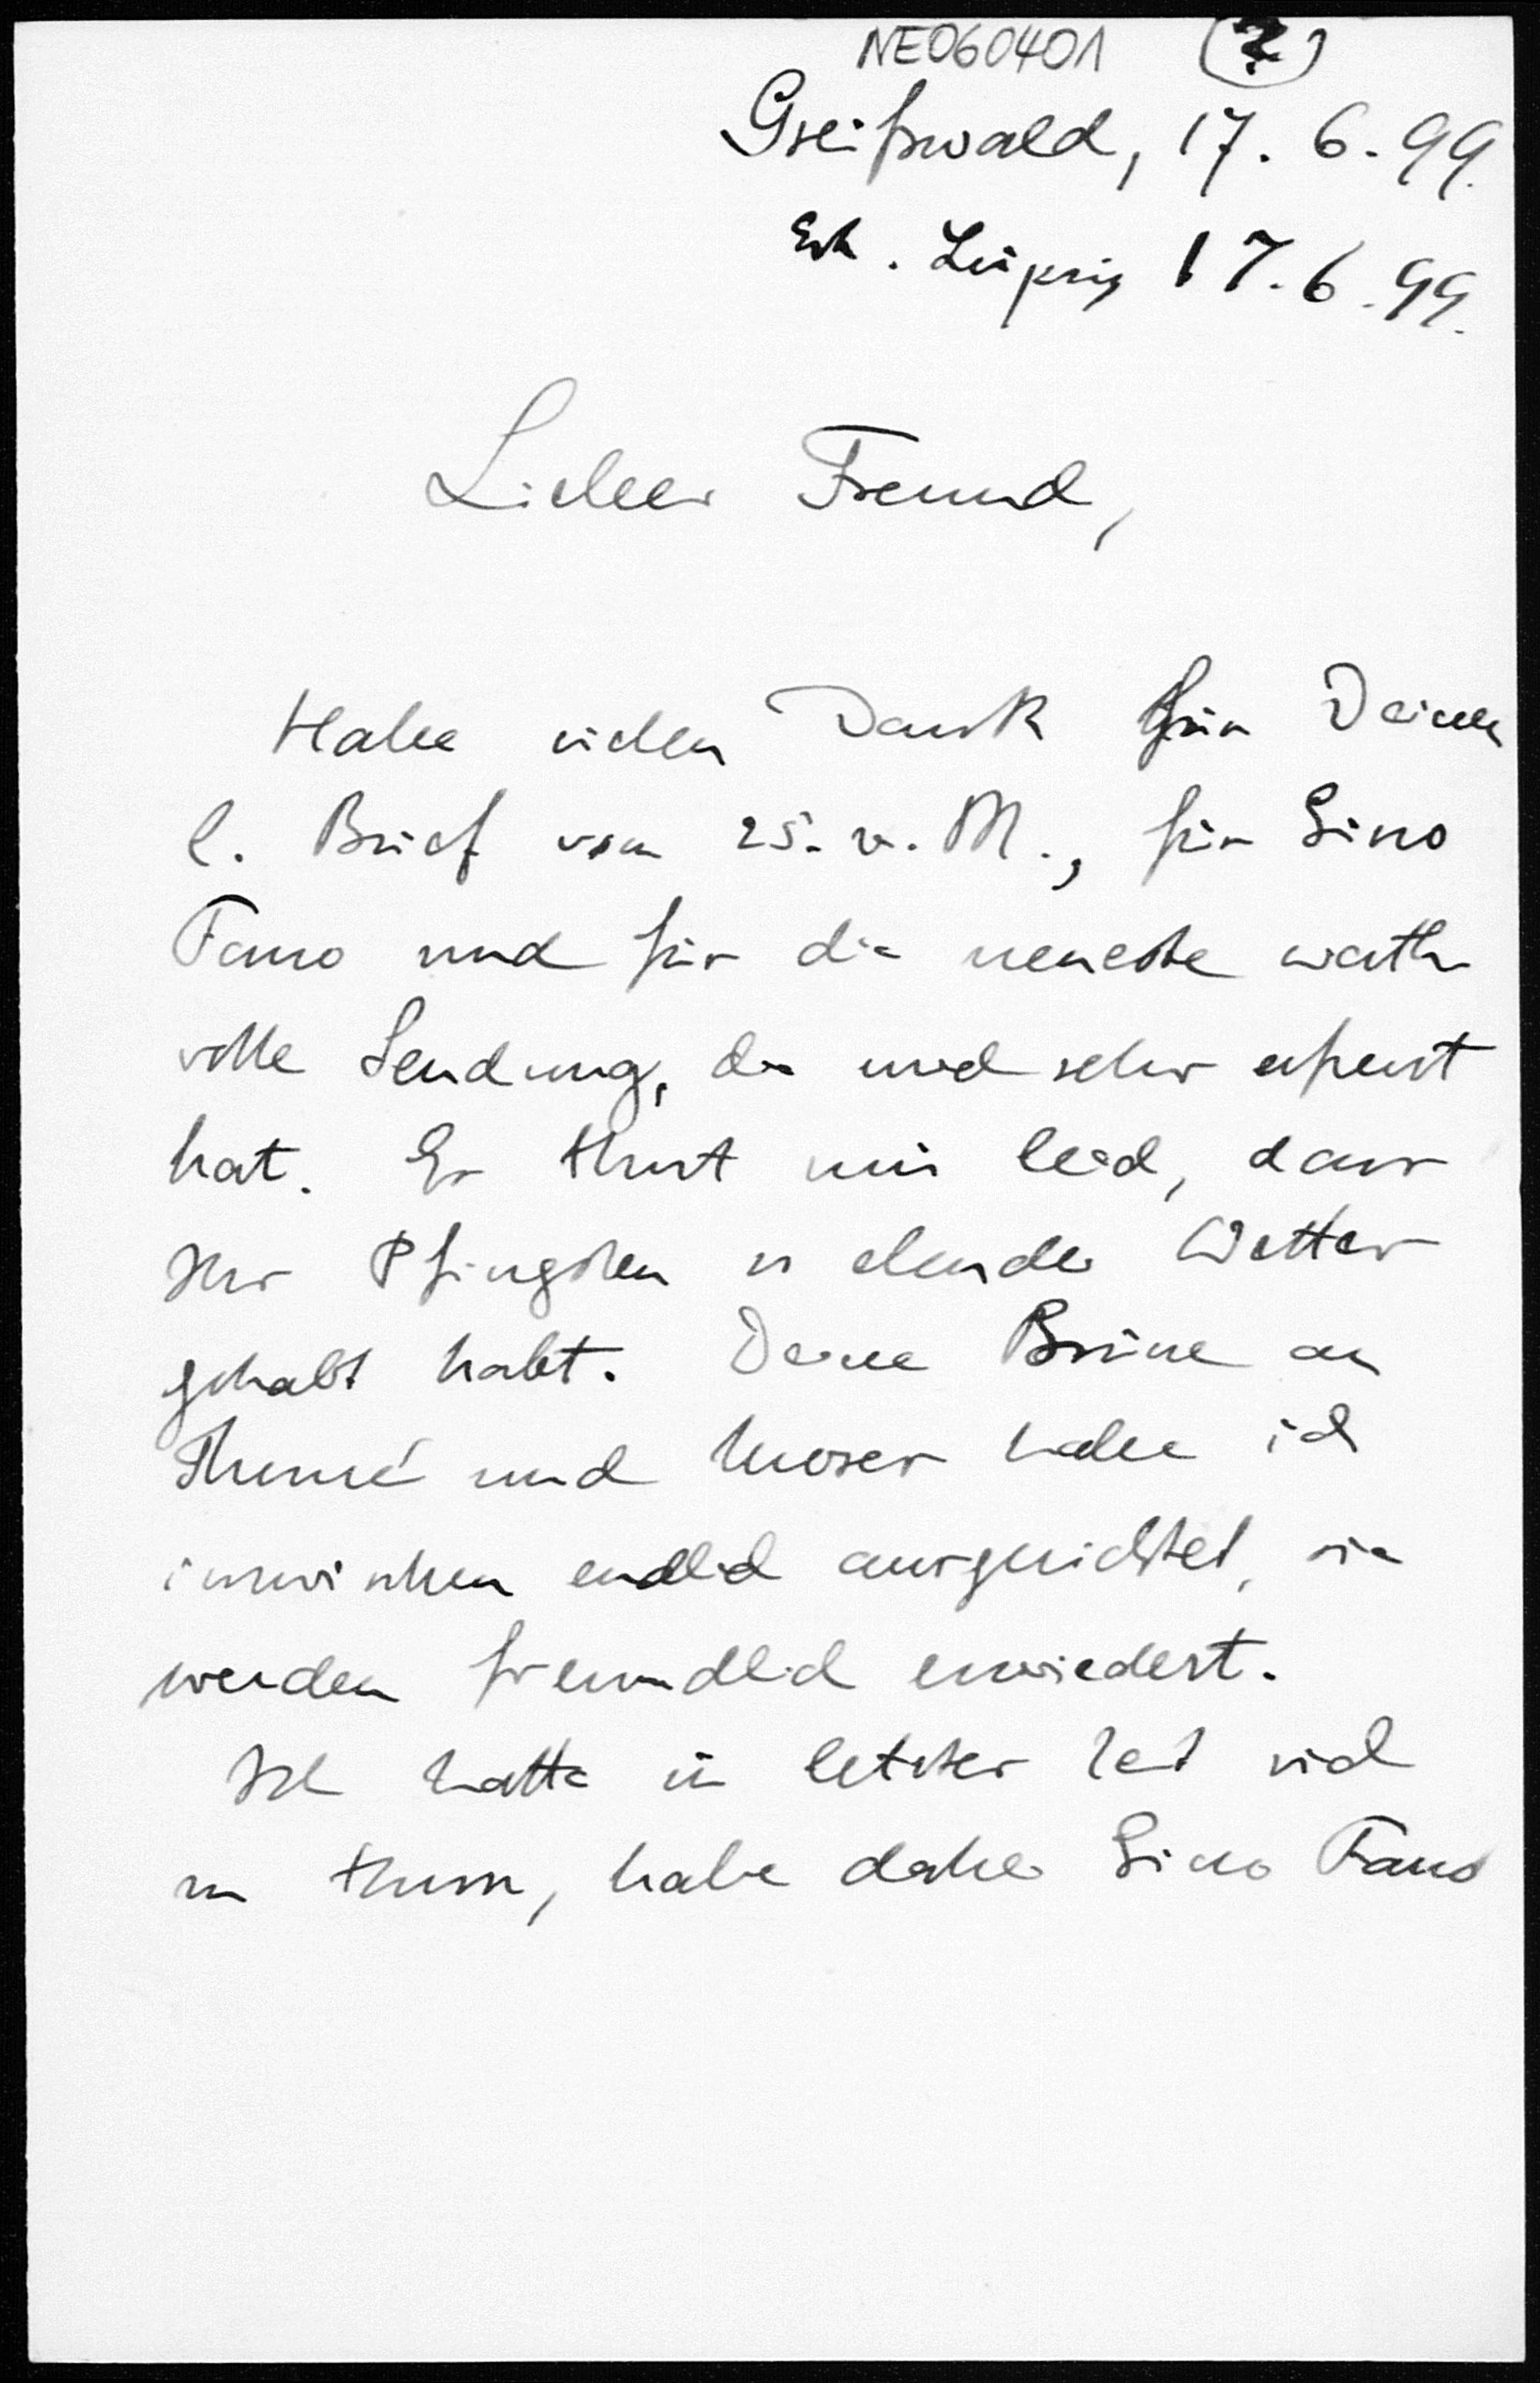 NE060401 (2)
Greifswald, 17. 6. 99.
Erh. Leipzig 17. 6. 99.
Lieber Freund,
Habe vielen Dank für Deinen
l. Brief vom 25. v. M., für Gino
Fano und für die neueste werth-
volle Sendung, die mich sehr erfreut
hat. Es thut mir leid, dass
Ihr Pfingsten so elendes Wetter
gehabt habt. Deine Grüsse an
Thomé und Moser habe ich
inzwischen endlich ausgerichtet, sie
werden freundlich erwiedert.
Ich hatte in letzter Zeit viel
zu thun, habe daher Gino Fano